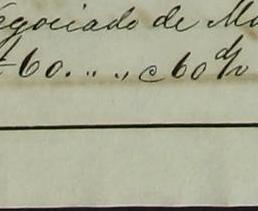 egociado de Ma
60. " " c 60 d/o